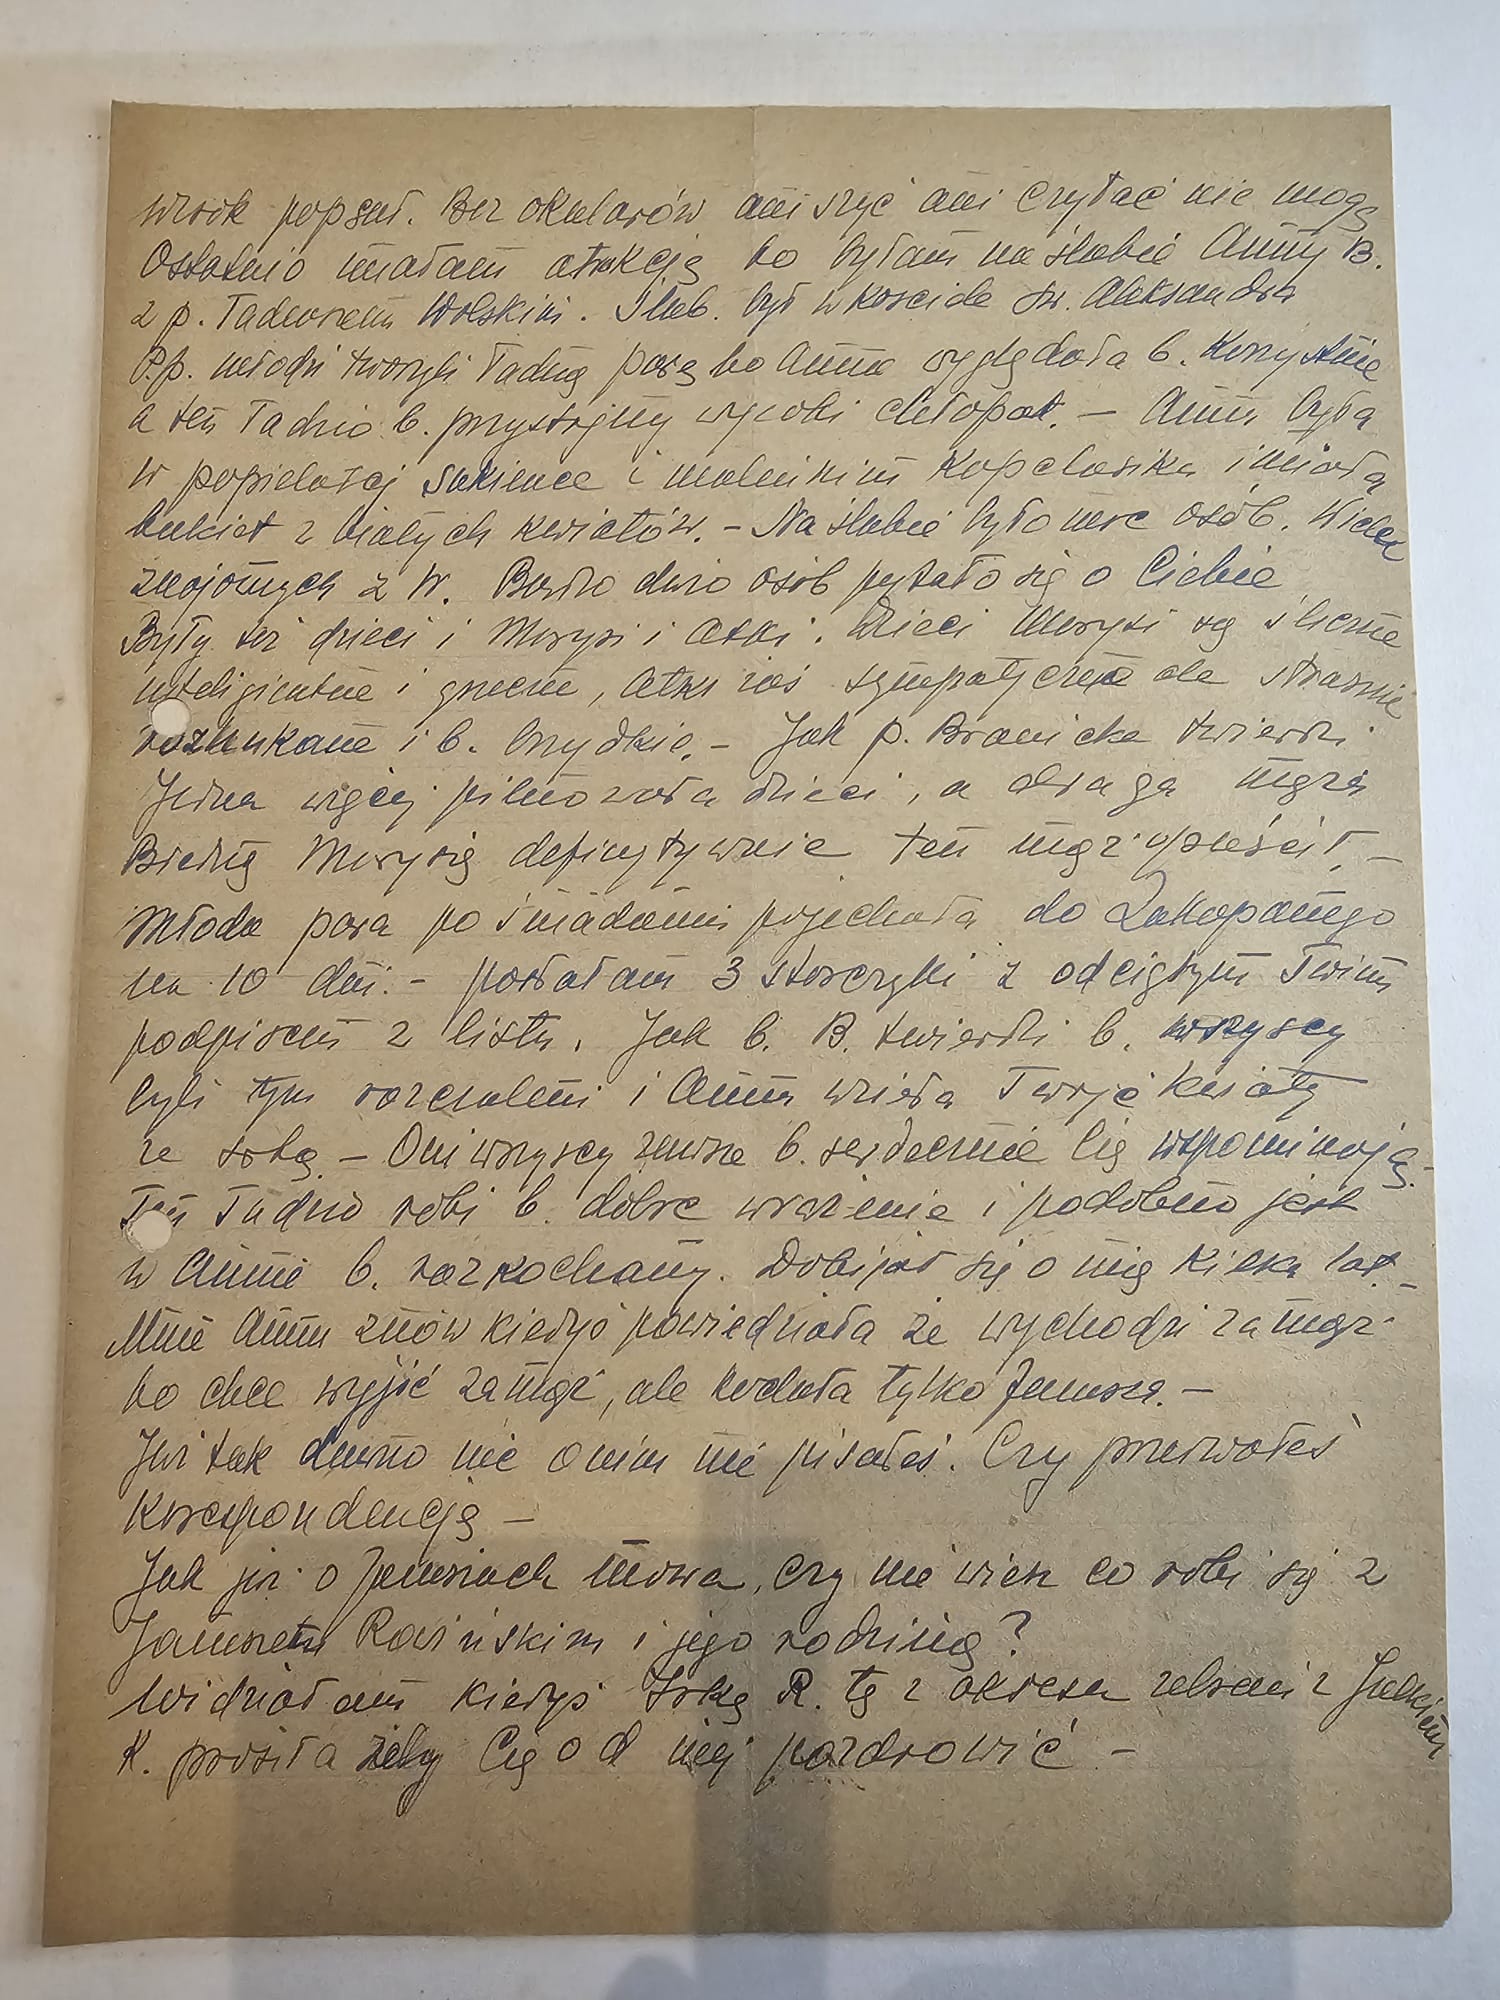 wzrok popsuł. Bez okularów ani szyć ani czytać nie mogę
Ostatnio miałam atrakcję bo byłam na ślubie Anny B.
z p. Tadeuszem Wolskim. Ślub. był w kościele św. Aleksandra
P.p. młodzi tworzyli ładną parę bo Anna wyglądała b. korzystnie
a ten Tadzio b. przystojny wysoki chłopak. — Anna była
w popielatej sukience i maleńkim kapelusiku i miała
bukiet z białych kwiatów. — Na ślubie było osób. Wielu
znajomych z W. Bardzo dużo osób pytało się o Ciebie
Były też dzieci i Marysi i Atki. Dzieci Marysi są śliczne
inteligentne i grzeczne, Atki zaś sympatyczne ale strasznie
rozhukane i b. brzydkie. — Jak p. Branicka twierdzi
Jedna więcej pilnowała dzieci, a druga męża
Biedną Marysię definytywnie ten mąż opuścił. —
Młoda para po śniadaniu pojechała do Zakopanego
na 10 dni. — posłałam 3 storczyki z odciętym Twoim
podpisem z listu. Jak b. B. twierdzi b. wszyscy
byli tym rozczuleni i Anna wzięła Twoje kwiaty
ze sobą. — Oni wszyscy zawsze b. serdecznie Cię wspominają.
Ten Tadzio robi b. dobre wrażenie i podobno jest
w Annie b. rozkochany. Dobijał się o nią kilka lat. —
Mnie Anna znów kiedyś powiedziała że wychodzi zamąż
bo chce wyjść zamąż, ale kochała tylko Janusza. —
Już tak dawno nic o nim nie pisałeś. Czy przerwałeś
korespondencję —
Jak już o Januszach mowa, czy nie wiesz co robi się z
Januszem Rosińskim i jego rodziną?
Widziałam kiedyś Irkę R. tę z okresu zebrań z Julkiem
K. prosiła żeby Cię od niej pozdrowić —